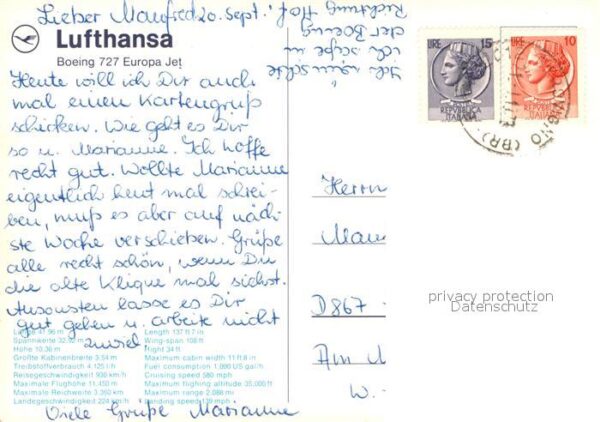 Lieber Manfred 20. Sept.
Lufthansa
Boeing 727 Europa Jet
Heute will ich Dir auch
mal einen Kartengruß
schicken. Wie geht es Dir
so u. Marianne. Ich hoffe
recht gut. Wollte Marianne
eigentlich heut mal schrei-
ben, muß es aber auf näch-
ste Woche verschieben. Grüße
alle recht schön, wenn Du
die alte Klique mal siehst.
Ansonsten lasse es Dir
gut gehen u. arbeite nicht
zuviel.
Viele Grüße Marianne
Ich wünschte
ich säße in
der Boeing
Richtung Hof
Länge 41.96 m
Spannweite 32.92 m
Höhe 10.36 m
Größte Kabinenbreite 3.54 m
Treibstoffverbrauch 4.125 l/h
Reisegeschwindigkeit 930 km/h
Maximale Flughöhe 11.450 m
Maximale Reichweite 3.350 km
Landegeschwindigkeit 224 km/h
Length 137 ft 7 in
Wing-span 108 ft
Hight 34 ft
Maximum cabin width 11 ft 8 in
Fuel consumption 1.090 US gal/h
Cruising speed 580 mph
Maximum flighing altitude 35,000 ft
Maximum range 2.088 mi
Landing speed 139 mph
LIRE 15
REPVBBLICA
ITALIANA
LIRE 10
REPVBBLICA
ITALIANA
(BR)
Herrn
Man
D867
Am
W.
privacy protection
Datenschutz